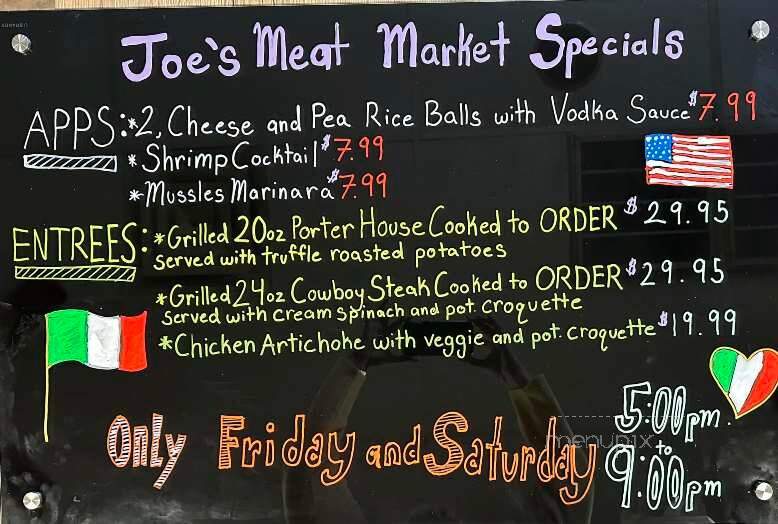 Joe's Meat Market Specials
APPS: *2, Cheese and Pea Rice Balls with Vodka Sauce $7.99
*Shrimp Cocktail $7.99
*Mussles Marinara $7.99
ENTREES: *Grilled 20oz Porter House Cooked to ORDER $29.95
served with truffle roasted potatoes
*Grilled 24oz Cowboy Steak Cooked to ORDER $29.95
served with cream spinach and pot. croquette
*Chicken Artichoke with veggie and pot. croquette $19.99
Only Friday and Saturday 5:00pm.
to
9:00pm
menupix